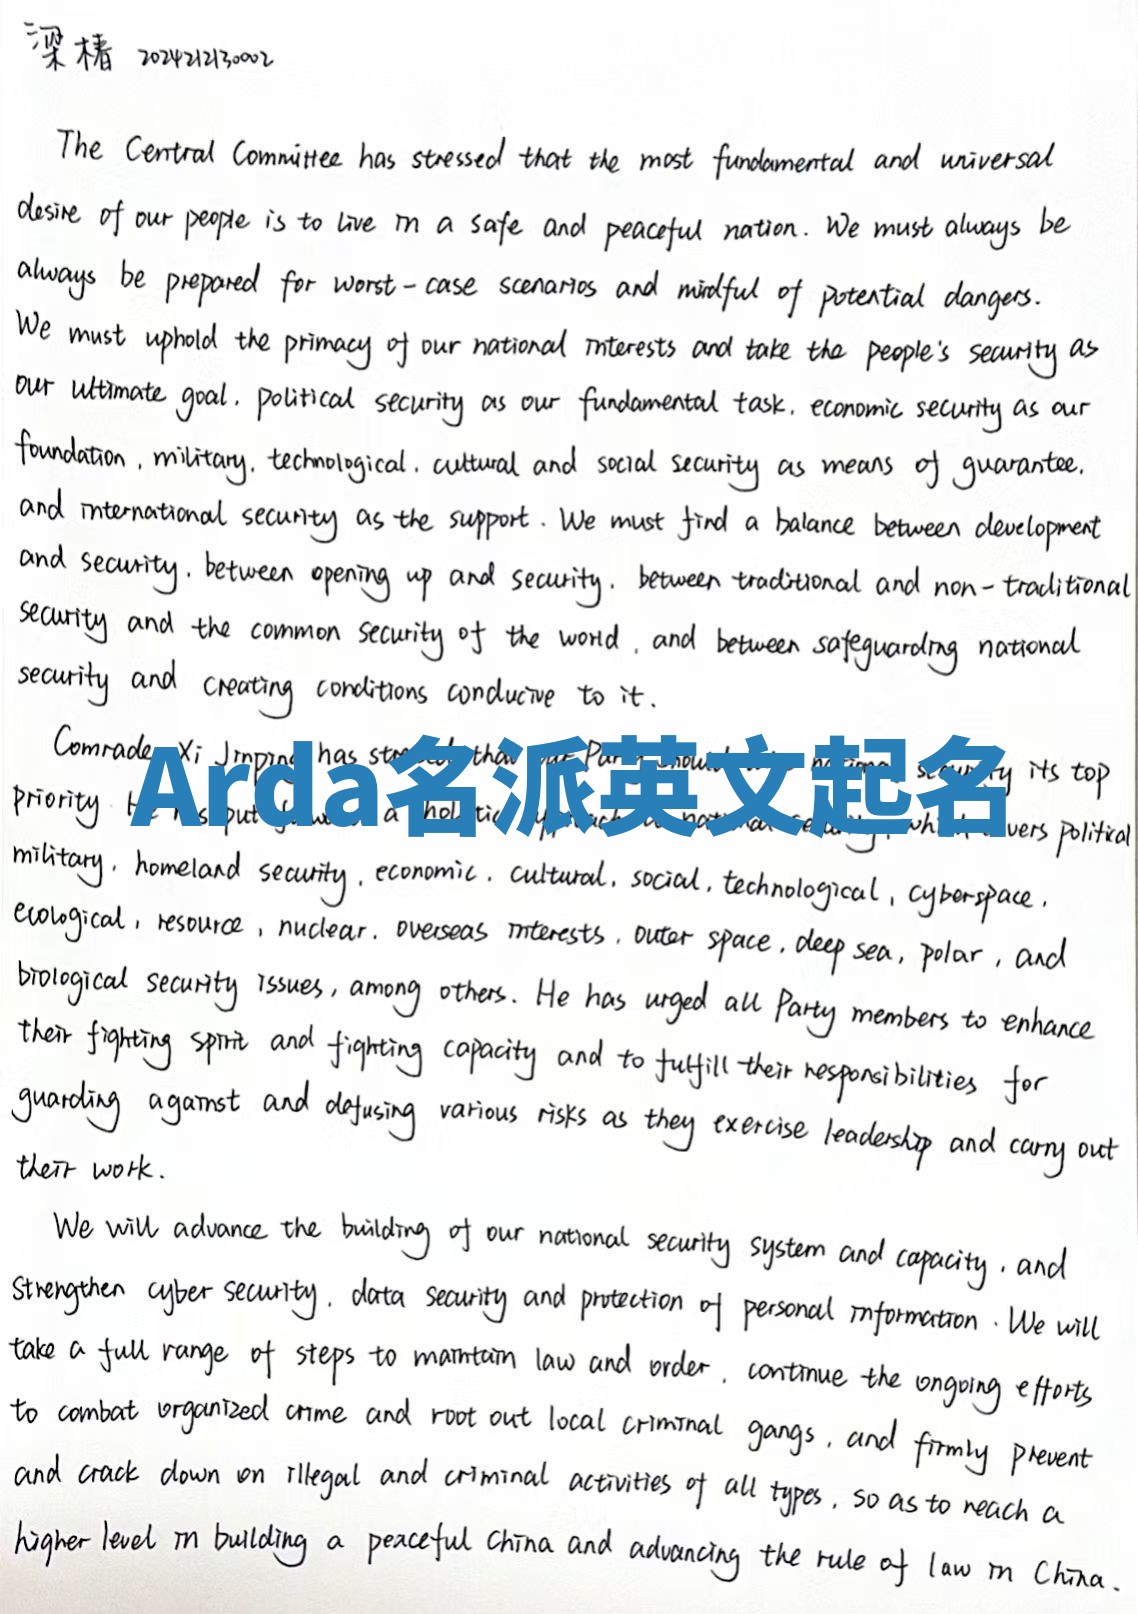 梁椿 2024212130002
The Central Committee has stressed that the most fundamental and universal
desire of our people is to live in a safe and peaceful nation. We must always be
always be prepared for worst-case scenarios and mindful of potential dangers.
We must uphold the primacy of our national interests and take the people's security as
our ultimate goal, political security as our fundamental task, economic security as our
foundation, military, technological, cultural and social security as means of guarantee,
and international security as the support. We must find a balance between development
and security, between opening up and security, between traditional and non-traditional
security and the common security of the world, and between safeguarding national
security and creating conditions conducive to it.
Comrade Xi Jinping has that Par its top
Arda名派英文起名
priority put a political
military, homeland security, economic, cultural, social, technological, cyberspace,
ecological, resource, nuclear, overseas interests, outer space, deep sea, polar, and
biological security issues, among others. He has urged all Party members to enhance
their fighting spirit and fighting capacity and to fulfill their responsibilities for
guarding against and defusing various risks as they exercise leadership and carry out
their work.
We will advance the building of our national security system and capacity, and
strengthen cyber security, data security and protection of personal information. We will
take a full range of steps to maintain law and order, continue the ongoing efforts
to combat organized crime and root out local criminal gangs, and firmly prevent
and crack down on illegal and criminal activities of all types, so as to reach a
higher level in building a peaceful China and advancing the rule of law in China.